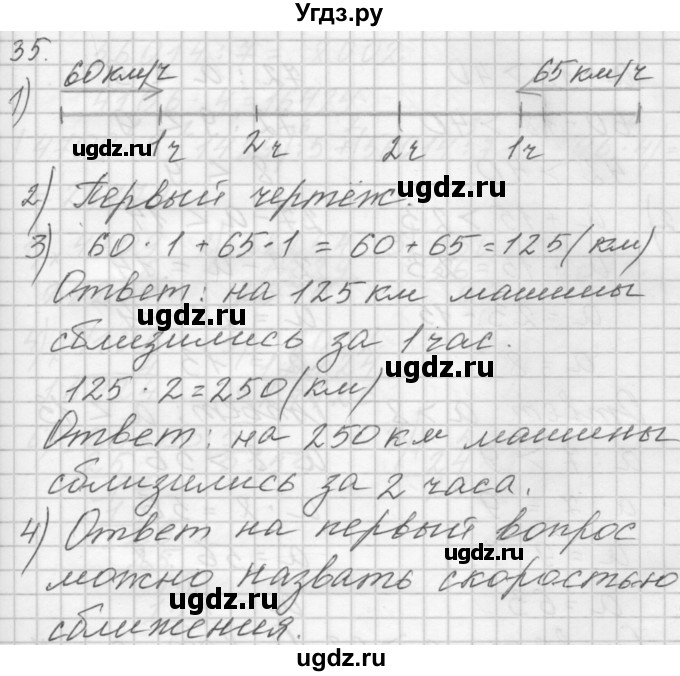 Угдз.ру
35.
60 км/ч 65 км/ч
1)
1ч 2ч 2ч 1ч
ugdz.ru
ugdz.ru
2) Первый чертёж.
ugdz.ru
3) 60 · 1 + 65 · 1 = 60 + 65 = 125 (км)
Ответ: на 125 км машины
ugdz.ru
сблизились за 1 час.
ugdz.ru
125 · 2 = 250 (км)
Ответ: на 250 км машины
ugdz.ru
сблизились за 2 часа.
4) Ответ на первый вопрос
ugdz.ru
можно назвать скоростью
ugdz.ru
сближения.
ugdz.ru